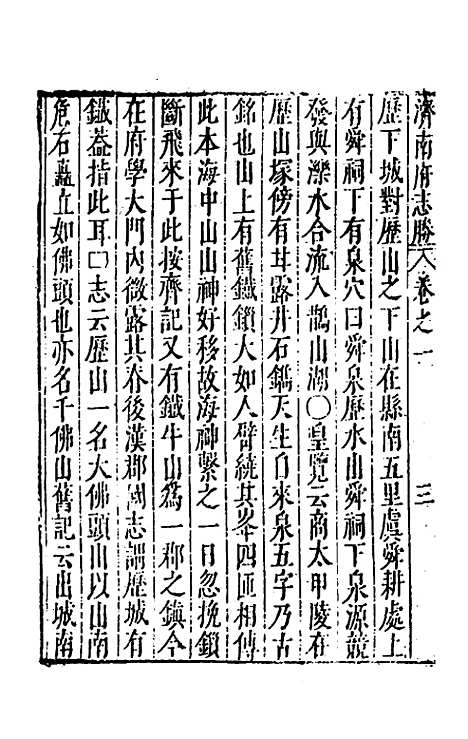 濟南府志勝 卷之一 三
歷下城對歷山之下山在縣南五里虞舜耕處上
有舜祠下有泉穴曰舜泉歷水山舜祠下泉源競
發與濼水合流入鵲山湖〇皇覽云商太甲陵在
歷山塚傍有甘露井石鐫天生自來泉五字乃古
銘也山上有舊鐵鎖大如人臂繞其峯四匝相傳
此本海中山山神好移故海神繫之一日忽挽鎖
斷飛來于此按齊記又有鐵牛山為一郡之鎮今
在府學大門內微露其脊後漢郡國志謂歷城有
鐵蓋指此耳□志云歷山一名大佛頭山以山南
危石矗立如佛頭也亦名千佛山舊記云出城南